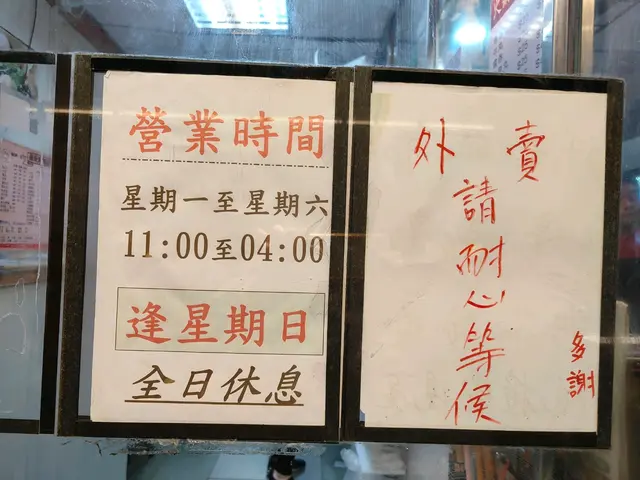 營業時間
星期一至星期六
11:00至04:00
逢星期日
全日休息
外賣
請耐心等候
多謝